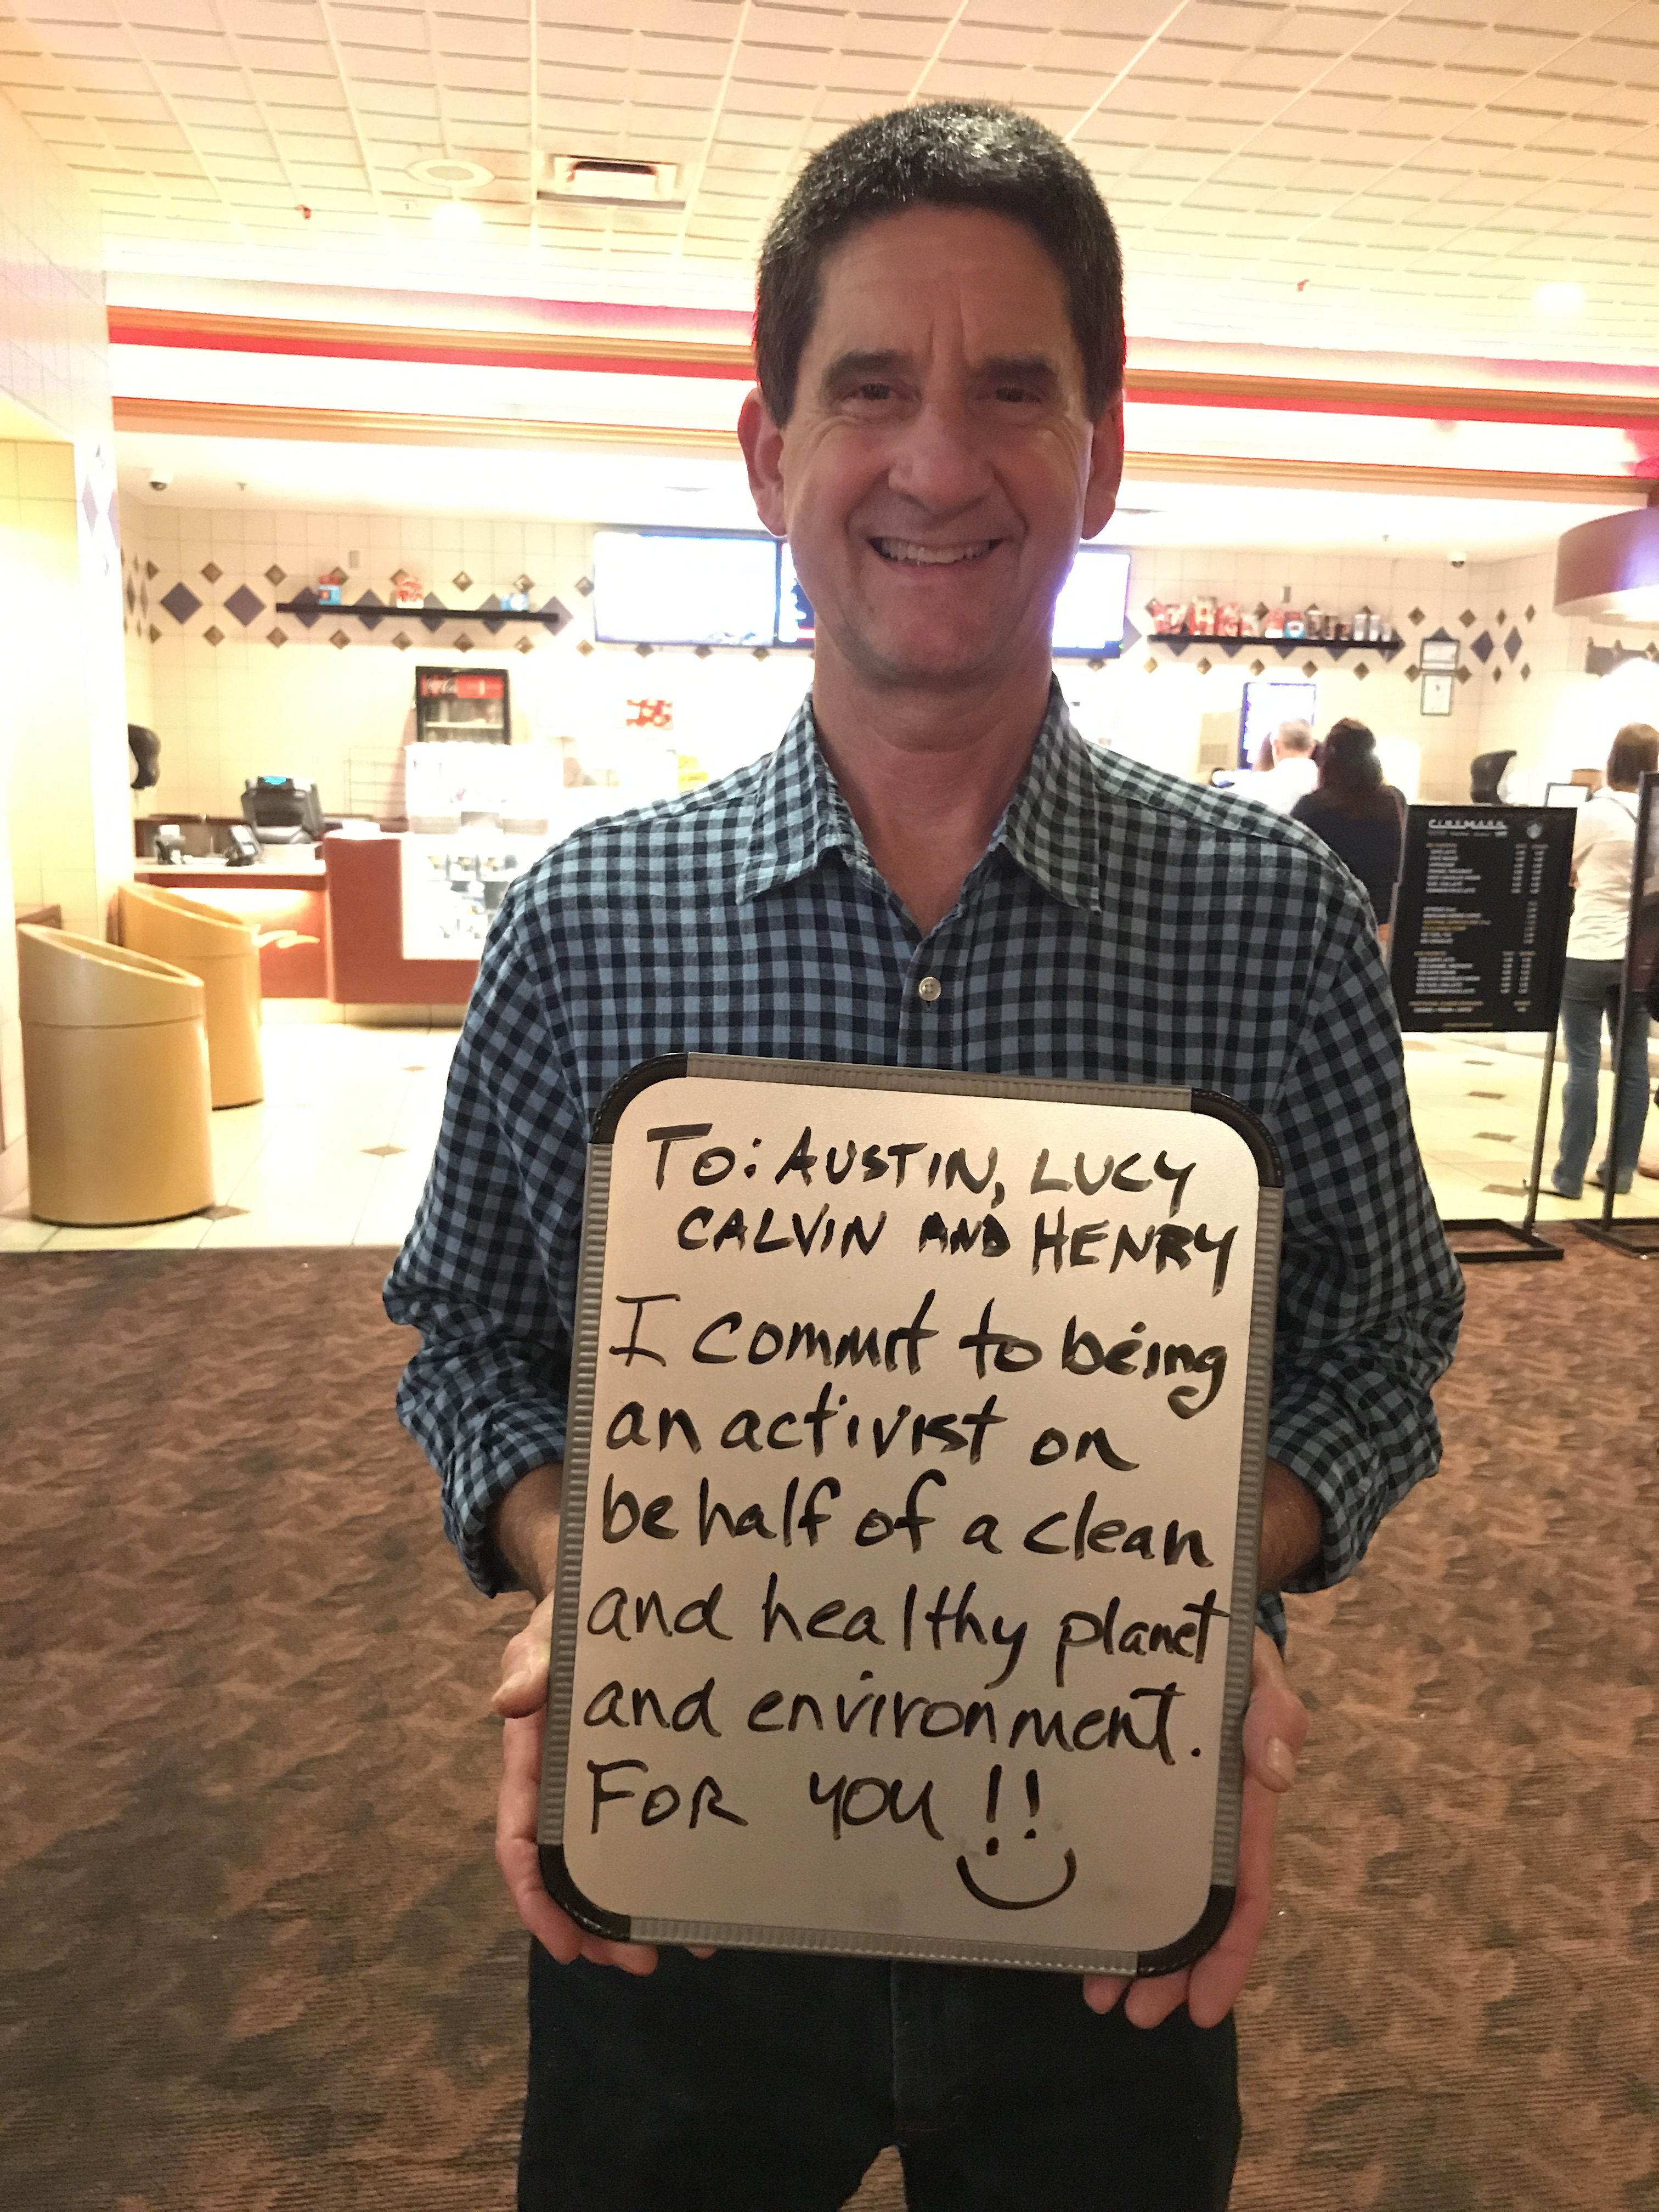 TO: AUSTIN, LUCY
CALVIN AND HENRY
I commit to being
an activist on
behalf of a clean
and healthy planet
and environment.
FOR YOU!!
CINEMARK